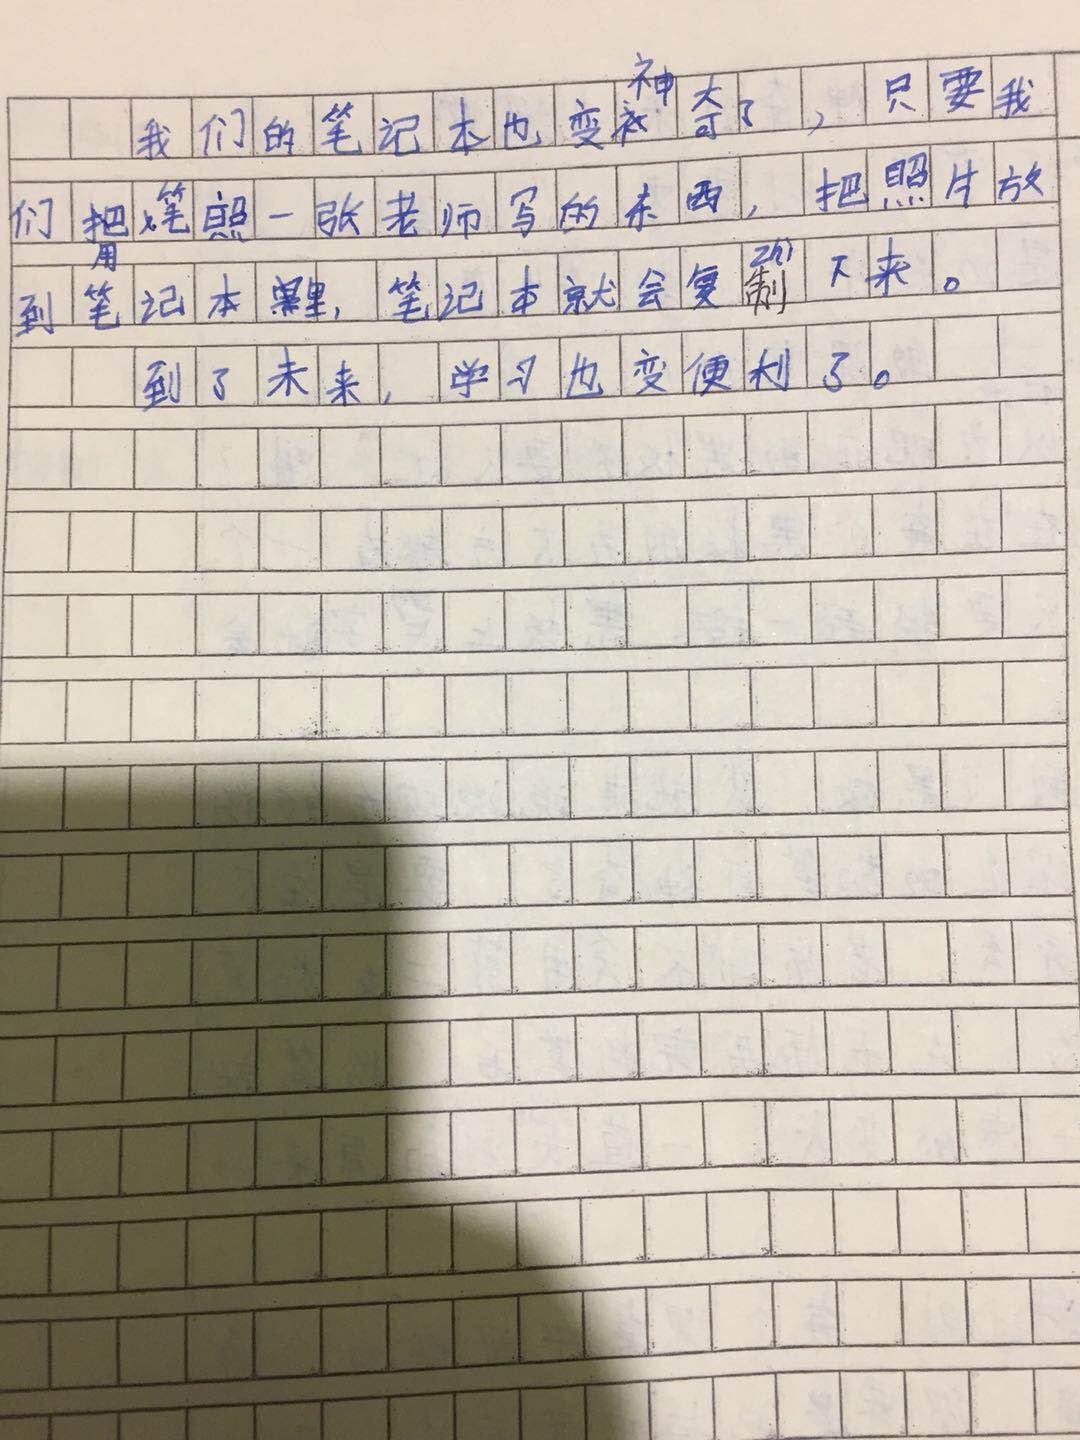 我们的笔记本也变神奇了，只要我
们用笔照一张老师写的东西，把照片放
到笔记本里，笔记本就会复制下来。
到了未来，学习也变便利了。